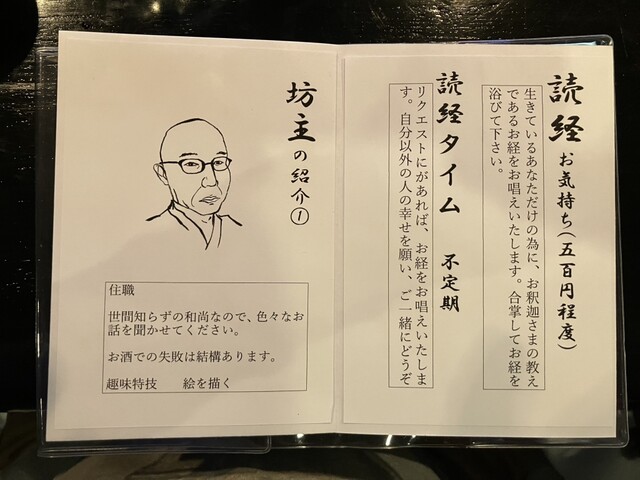 読経 お気持ち(五百円程度)
生きているあなただけの為に、お釈迦さまの教え
であるお経をお唱えいたします。合掌してお経を
浴びて下さい。
読経タイム 不定期
リクエストにがあれば、お経をお唱えいたしま
す。自分以外の人の幸せを願い、ご一緒にどうぞ
坊主の紹介①
住職
世間知らずの和尚なので、色々なお
話を聞かせてください。
お酒での失敗は結構あります。
趣味特技 絵を描く